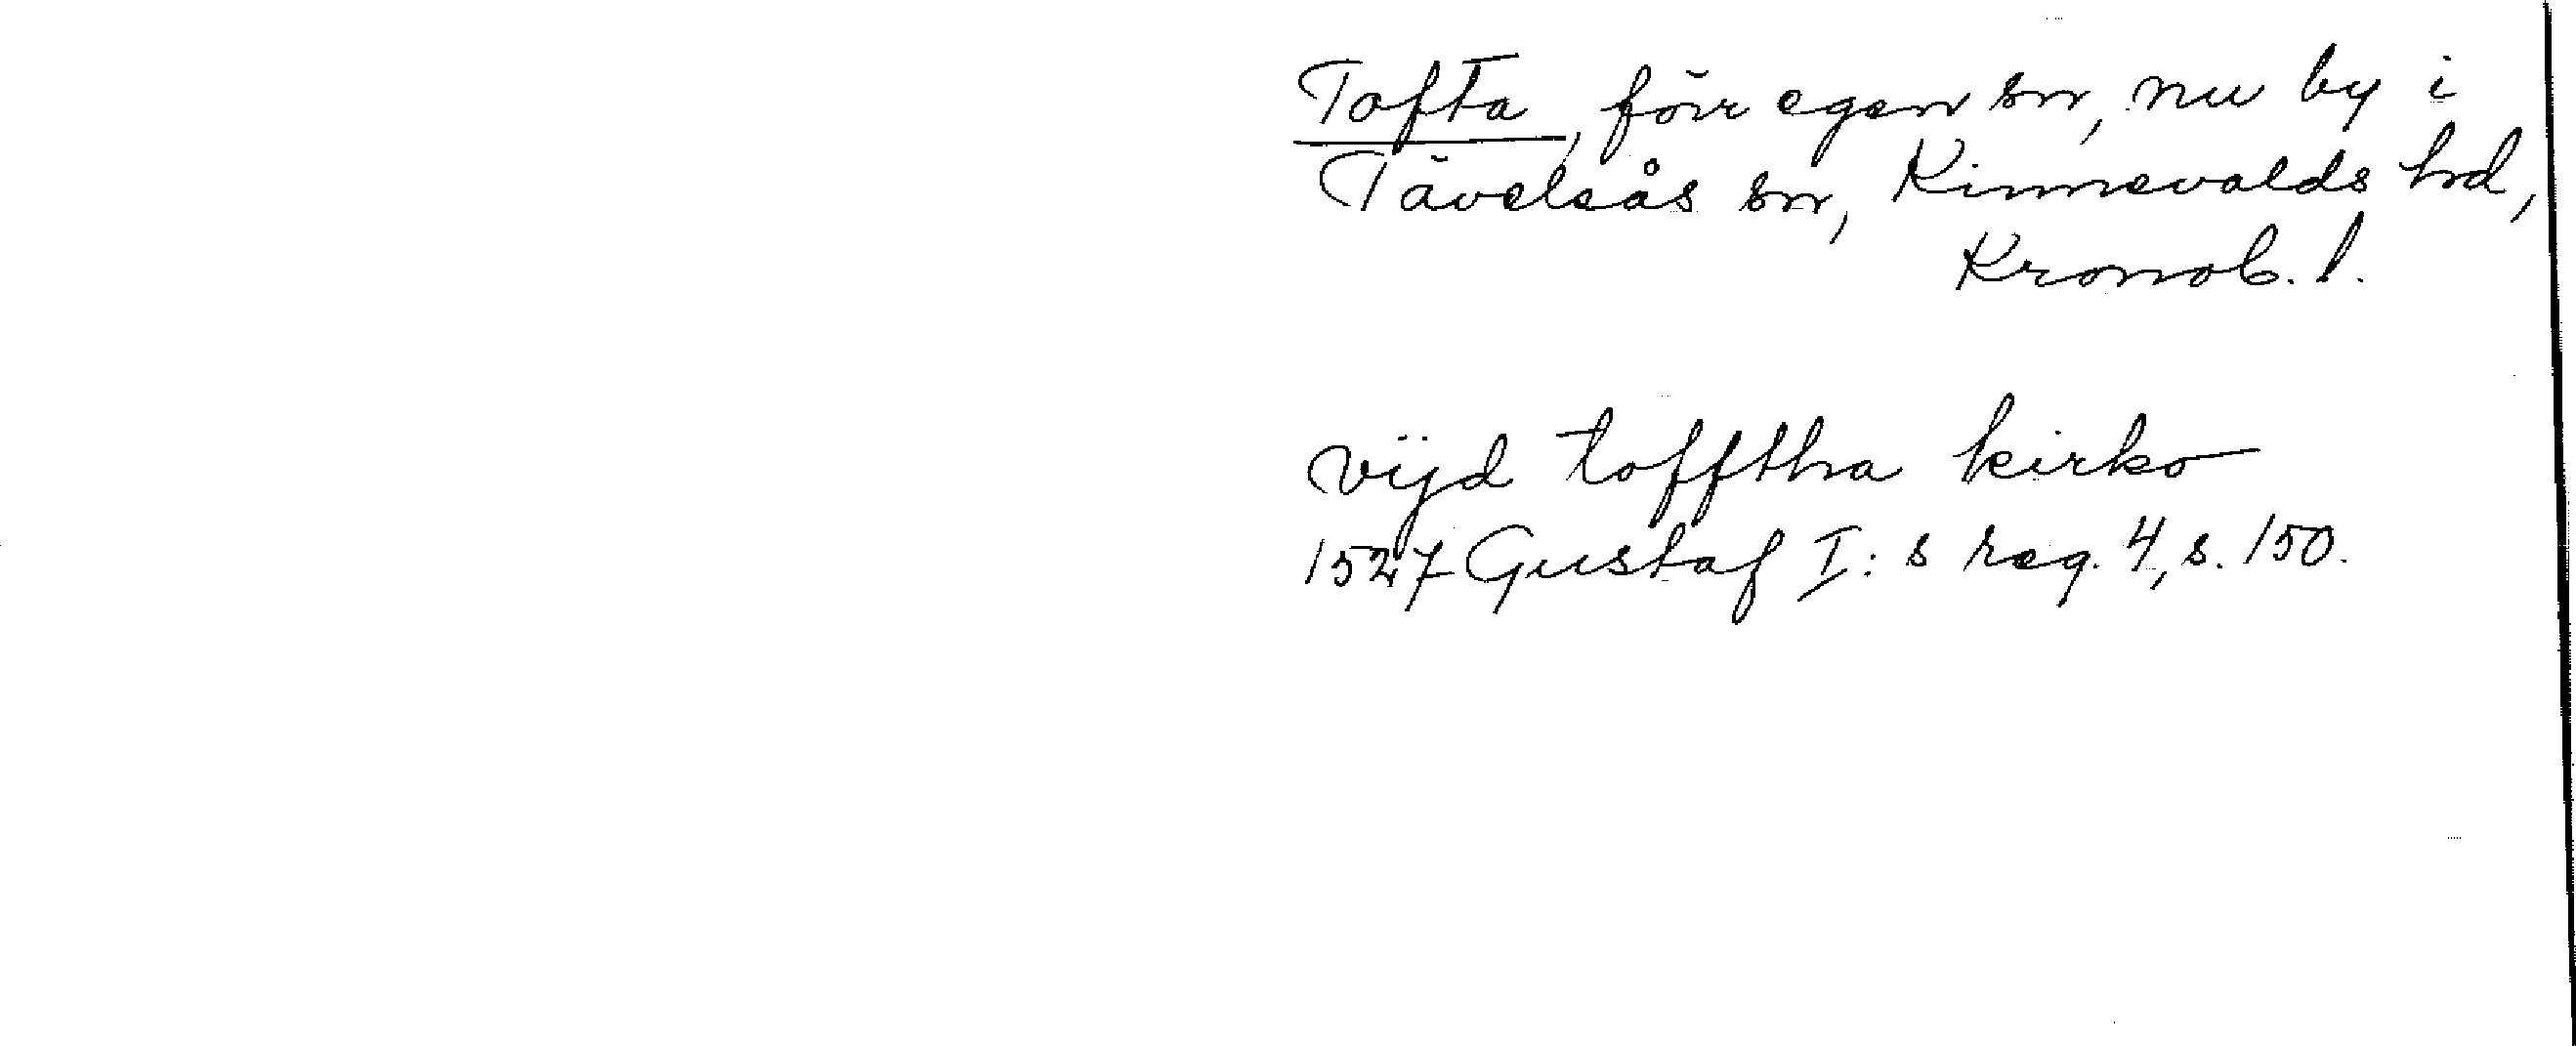 Tofta, förr egen sn, nu by i
Tävelsås sn, Kinnevalds hd,
Kronob. l.
vijd tofftha kirko
1527 Gustaf I:s reg. 4, s. 150.